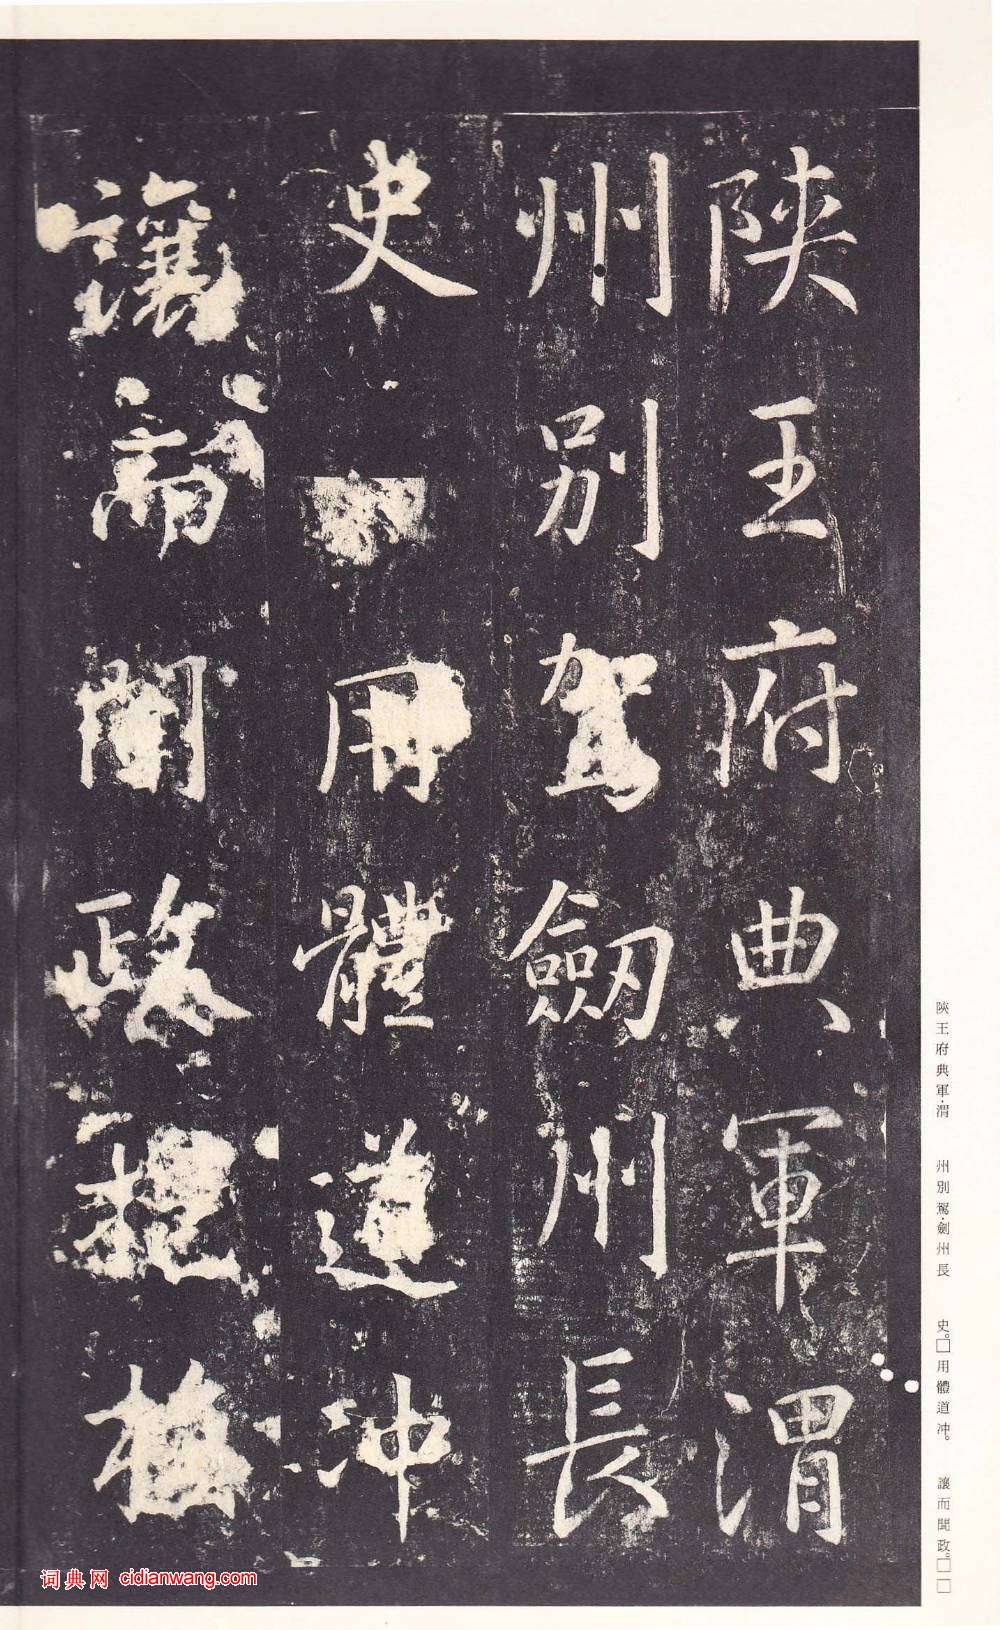 陝王府典軍渭
州別駕劍州長
史用體道冲
讓而聞政
陝王府典軍·渭 州別駕·劍州長 史。□用體道冲。 讓而聞政。□□
词典网 cidianwang.com